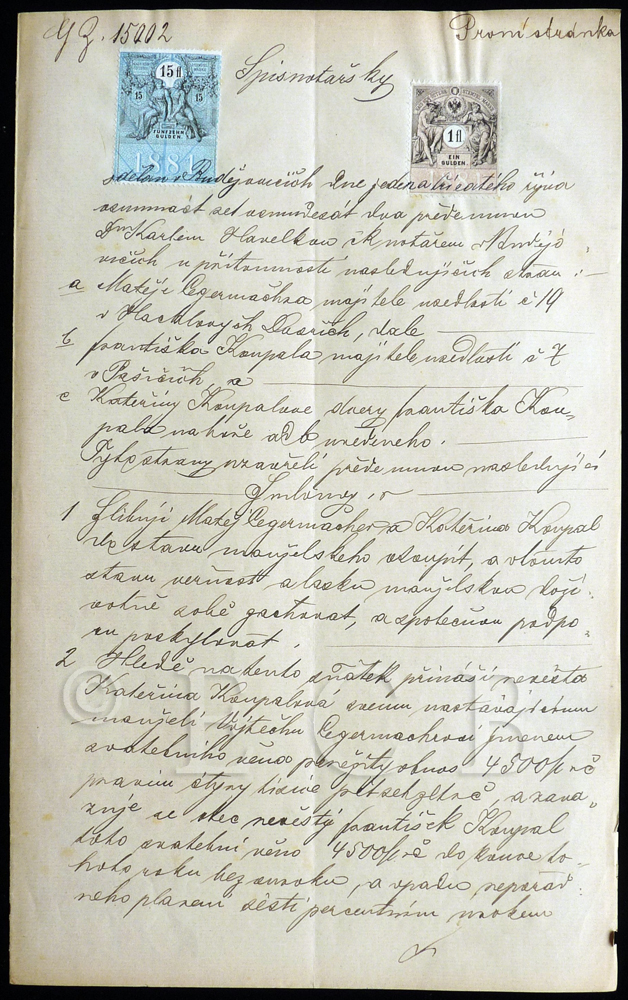 G Z. 15002
První stránka
Spis notářský
15 fl
15
15
FÜNFZEHN
GULDEN
1881
1 fl
EIN
GULDEN
zdělan v Budějovicích dne jedenatřicatého října
osumnáct set osmdesát dva přede mnou
Drm Karlem Havelkou čk notářem v Budějo
vicích u přítomnosti naslednjících stran :
a Matěje Cegermachra majitele usedlosti č 19
v Dasřích, dale
b Františka Koupala majitele usedlosti č 7
v Pašicích a
c Kateřiny Koupalove dcery Františka Kou
pala nahoře ad b uvedeneho.
Tyto strany uzavřeli přede mnou naslednjící
Smlouvy
1 Slibuji Matěj Cegermacher a Kateřina Koupal
do stavu manželskeho vstoupit, a v tomto
stavu věrnost a lasku manželskou doži
votně sobě zachovat, a společnou podpo
ru poskytovat.
2 Hledě na tento sňatek přináší nevěsta
Kateřina Koupalová svemu nastávajícimu
manželi Vojtěchu Cegermachrovi jmenem
svatebního věna peněžitý obnos 4500 fl rč
pravim čtyry tisíce pět set zl rč, a zava
zuje se otec nevěsty František Koupal
toto svatební věno 4500 fl rč do konce to
hoto roku bez uroku, a v padu nepořad
neho placení šesti percentním urokem
© ECE